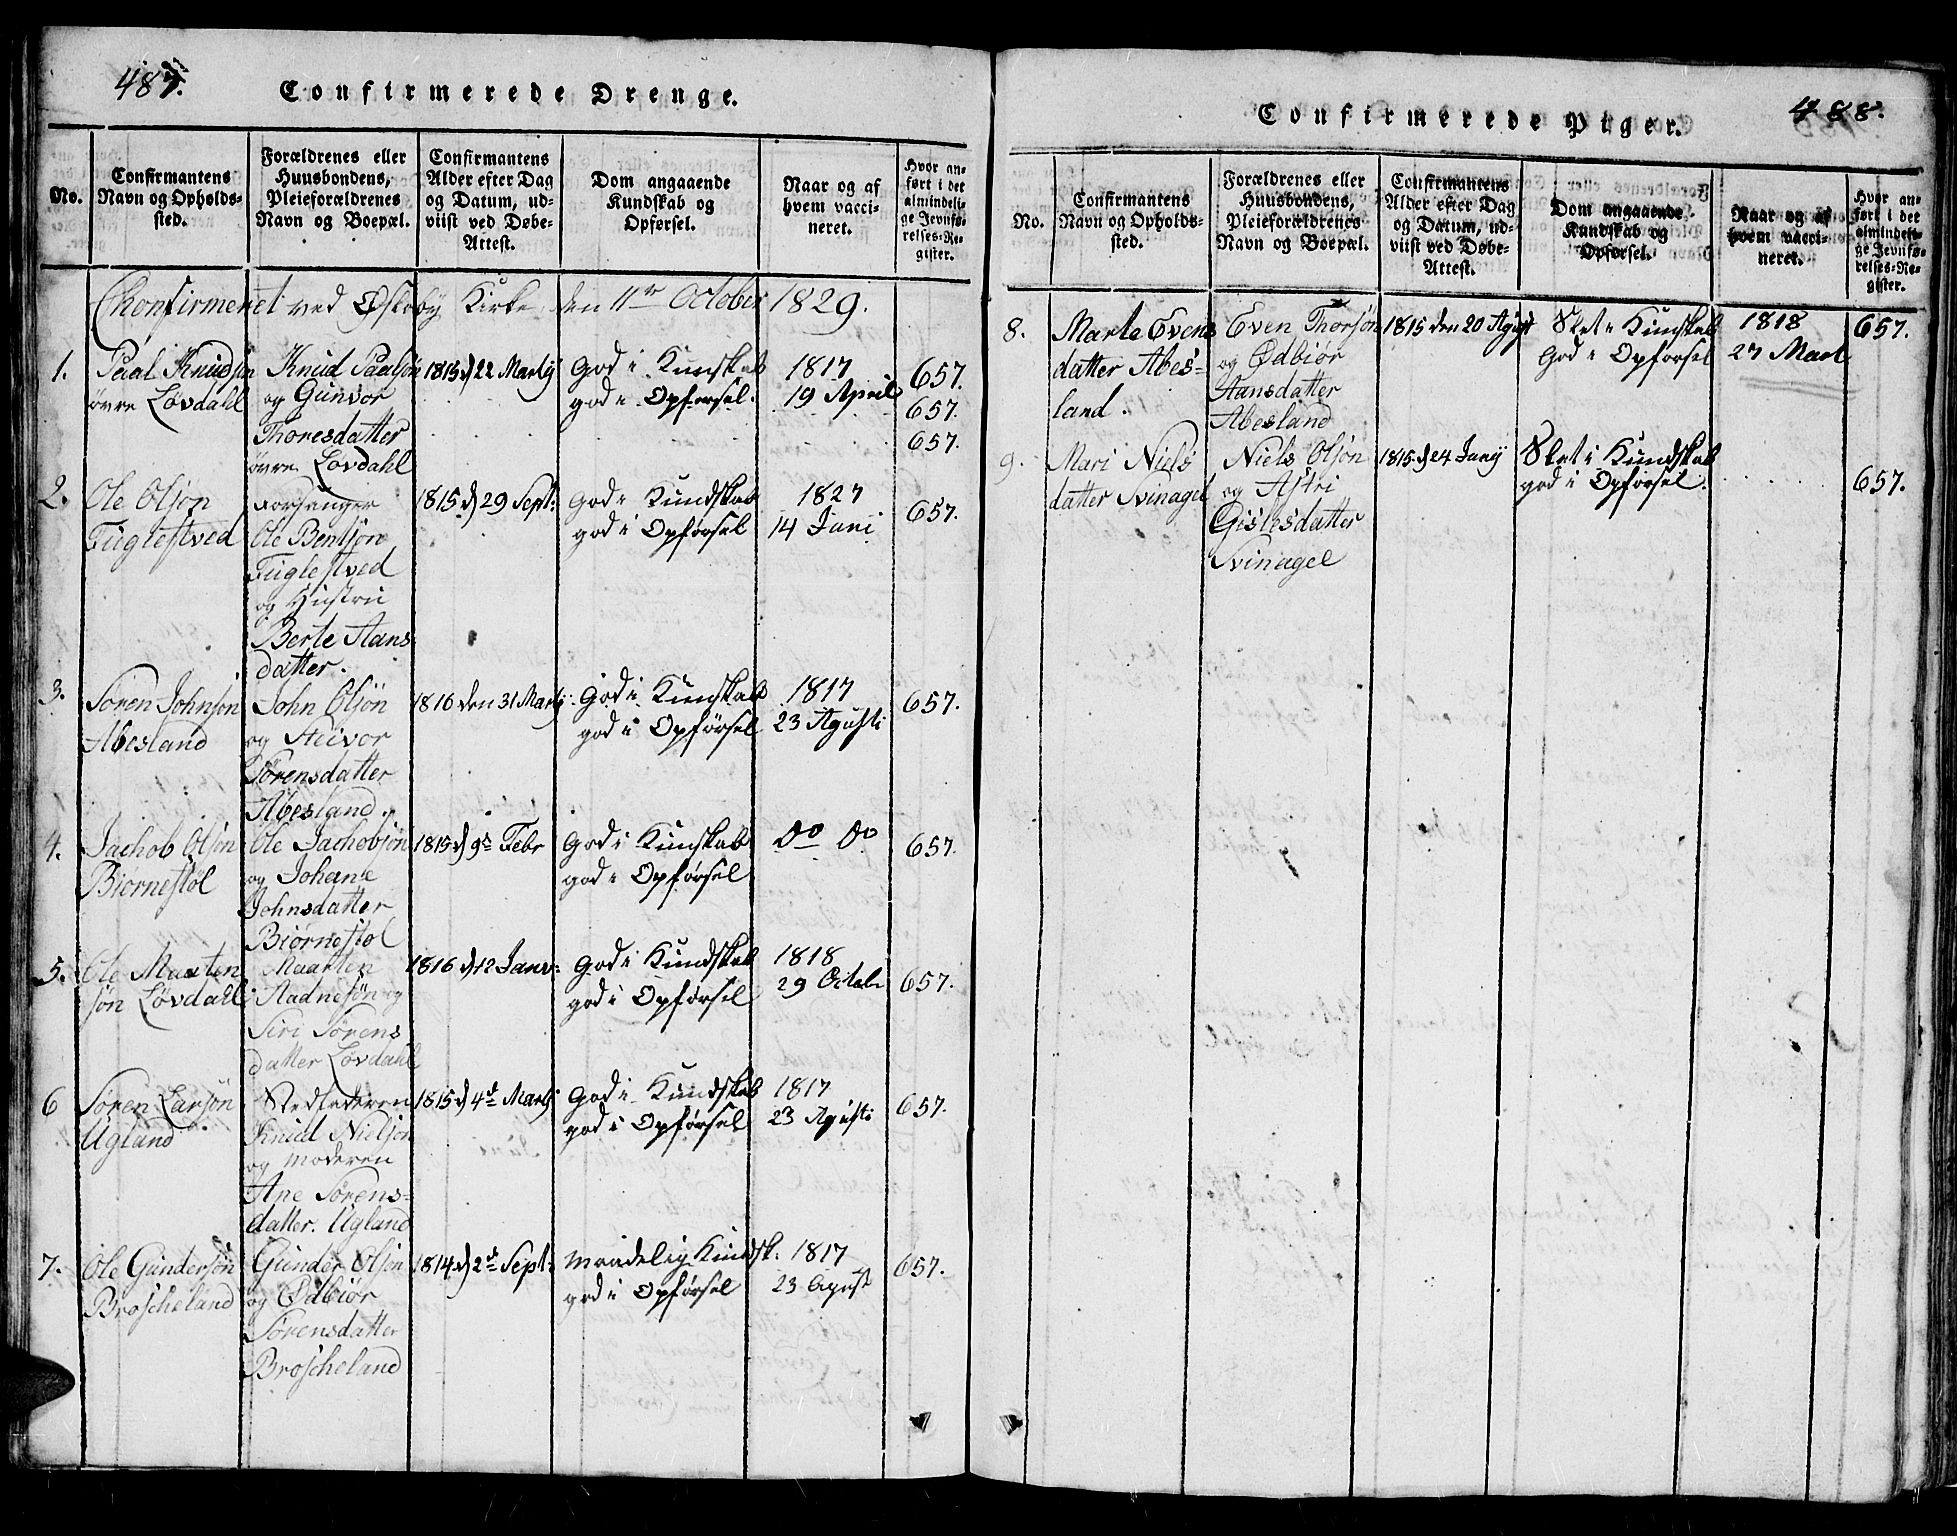 487.
Confirmerede Drenge.
No.
Confirmantens
Navn og Opholds-
sted.
Forældrenes eller
Huusbondens,
Pleieforældrenes
Navn og Boepæl.
Confirmantens
Alder efter Dag
og Datum, ud-
viist ved Døbe-
Attest.
Dom angaaende
Kundskab og
Opførsel.
Naar og af
hvem vacci-
neret.
Hvor an-
ført i det
almindeli-
ge Jevnfø-
relses-Re-
gister.
Chonfirmeret ved Øsloby Kirke den 11te October 1829.
1.
Paal Knudsøn
øvre Løvdahl
Knud Paalsøn
og Gunvor
Thoresdatter
øvre Løvdahl
1815 d 22 Martij
God i Kunskab
god i Opførsel.
1817
19 April
657.
657.
657.
2.
Ole Olsøn
Fuglestved
Forsanger
Ole Bentsøn
Fuglestved
og Hustru
Berte Aans
datter.
1815 d 29 Sept:
God i Kundskab
god i Opførsel
1827
14 Juni
657.
3.
Søren Johnsøn
Abesland
John Olsøn
og Steivor
Sørensdatter
Abesland.
1816 den 31 Martij
God i Kunskab
god i Opførsel
1817
23 Agusti
657.
4.
Jachob Olsøn
Biørnestøl
Ole Jachobsøn
og Johane
Johnsdatter
Biørnestøl
1815 d 9de Febr
God i Kunskab
god i Opførsel
Do Do
657.
5.
Ole Maarten
søn Løvdahl
Maarten
Aadnesøn og
Siri Sørens
datter Løvdahl
1816 d 12 Janv:
God i Kundskab
god i Opførsel
1818
29 Octob
657.
6
Søren Larsøn
Ugland
Stedfaderen
Knud Nielsøn
og Moderen
Ane Sørens-
datter. Ugland
1815 d 4de Martj
God i Kundskab
god i Opførsel
1817
23 Agusti
657.
7.
Ole Gundersøn
Broscheland
Gunder Olsøn
og Ødbiør
Sørensdatter
Broscheland
1814 d 2de Sept:
Maadelig Kundsk:
god i Opførsel
1817
23 Agust
657.
488.
Confirmerede Piger.
No.
Confirmantens
Navn og Opholds-
sted.
Forældrenes eller
Huusbondens,
Pleieforældrenes
Navn og Boepæl.
Confirmantens
Alder efter Dag
og Datum, ud-
viist ved Døbe-
Attest.
Dom angaaende
Kundskab og
Opførsel.
Naar og af
hvem vacci-
neret.
Hvor an-
ført i det
almindeli-
ge Jevnfø-
relses-Re-
gister.
8.
Marte Evens
datter Abes-
land.
Even Thorsøn
og Ødbiør
Aansdatter
Abesland
1815 den 20 Agust
Slet i Kunskab
God i Opførsel
1818
27 Mart
657.
9.
Mari Niels
datter Svinagel
Niels Olsøn
og Astri
Gislesdatter
Svinagel
1815 d 24 Junij
Slet i Kundskab
god i Opførsel.
657.